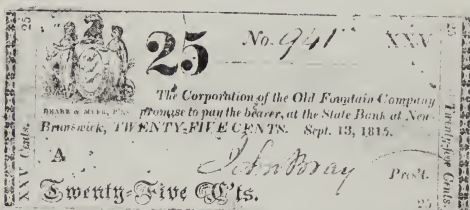 25
No. 941
XXV
The Corporation of the Old Fountain Company
promise to pay the bearer, at the State Bank at New-
Brunswick, TWENTY-FIVE CENTS. Sept. 13, 1815.
A
John Bray
Pres't.
Twenty-Five C'ts.
25
XXV Cents.
Twenty-five Cents.
25